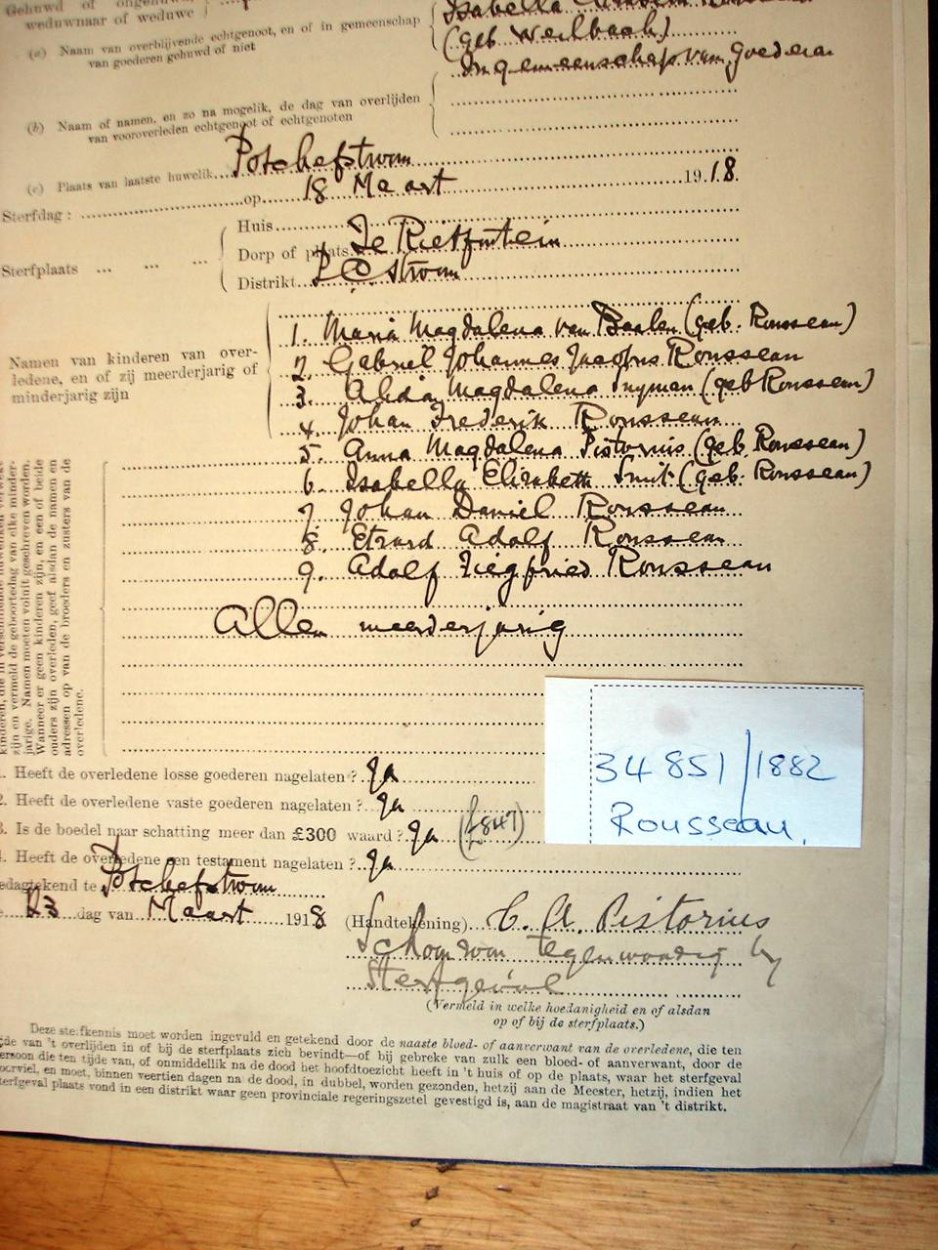 Gehuwd of ongehuwd,
weduwnaar of weduwe
Isabella
(a) Naam van overblijvende echtgenoot, en of in gemeenschap
van goederen gehuwd of niet
(geb. Weilbach)
In gemeenschap van Goederen
(b) Naam of namen, en zo na mogelik, de dag van overlijden
van vooroverleden echtgenoot of echtgenoten
(c) Plaats van laatste huwelik Potchefstroom
Sterfdag : op 18 Maart 1918.
Sterfplaats ... ... ...
Huis
Dorp of plaats Te Rietfontein
Distrikt P. C. Stroom
Namen van kinderen van over-
ledene, en of zij meerderjarig of
minderjarig zijn
1. Maria Magdalena van Baalen (geb. Rousseau)
2. Gabriel Johannes Jacobus Rousseau
3. Alida Magdalena Snyman (geb Rousseau)
4. Johan Frederik Rousseau
5. Anna Magdalena Pistorius (geb. Rousseau)
6. Isabella Elizabeth Smit (geb. Rousseau)
7. Johan Daniel Rousseau
8. Etzard Adolf Rousseau
9. Adolf Ziegfried Rousseau
Allen meerderjarig
zijn en vermeld de geboortedag van elke minder-
jarige. Namen moeten voluit geschreven worden.
Wanneer er geen kinderen zijn, en een of beide
ouders zijn overleden, geef alsdan de namen en
adressen op van de broeders en zusters van de
overledene.
1. Heeft de overledene losse goederen nagelaten ? Ja
2. Heeft de overledene vaste goederen nagelaten ? Ja
3. Is de boedel naar schatting meer dan £300 waard ? Ja (£847)
4. Heeft de overledene een testament nagelaten ? Ja
34851/1882
Rousseau.
edagtekend te Potchefstroom
23 dag van Maart 1918
(Handtekening) C. A. Pistorius
Schoonzoon tegenwoordig by
Sterfgeval
(Vermeld in welke hoedanigheid en of alsdan
op of bij de sterfplaats.)
Deze sterfkennis moet worden ingevuld en getekend door de naaste bloed- of aanverwant van de overledene, die ten
tijde van 't overlijden in of bij de sterfplaats zich bevindt—of bij gebreke van zulk een bloed- of aanverwant, door de
persoon die ten tijde van, of onmiddellik na de dood het hoofdtoezicht heeft in 't huis of op de plaats, waar het sterfgeval
voorviel, en moet, binnen veertien dagen na de dood, in dubbel, worden gezonden, hetzij aan de Meester, hetzij, indien het
sterfgeval plaats vond in een distrikt waar geen provinciale regeringszetel gevestigd is, aan de magistraat van 't distrikt.